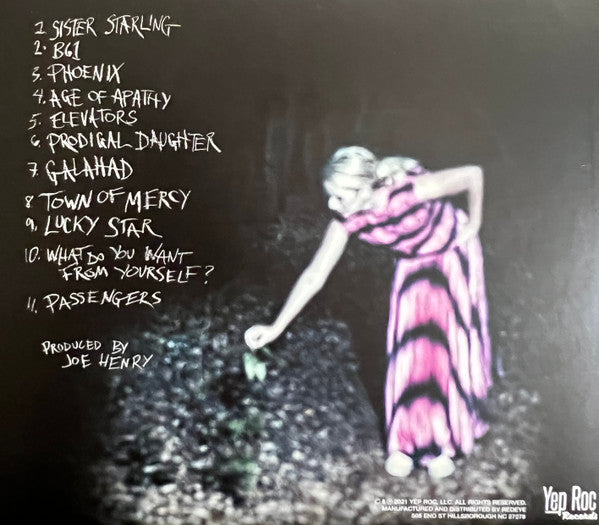 1. SISTER STARLING
2. B61
3. PHOENIX
4. AGE OF APATHY
5. ELEVATORS
6. PRODIGAL DAUGHTER
7. GALAHAD
8 TOWN OF MERCY
9. LUCKY STAR
10. WHAT DO YOU WANT
FROM YOURSELF?
11. PASSENGERS
PRODUCED BY
JOE HENRY
© & ℗ 2021 YEP ROC, LLC. ALL RIGHTS RESERVED.
MANUFACTURED AND DISTRIBUTED BY REDEYE
505 ENO ST HILLSBOROUGH NC 27278
Yep Roc
Records